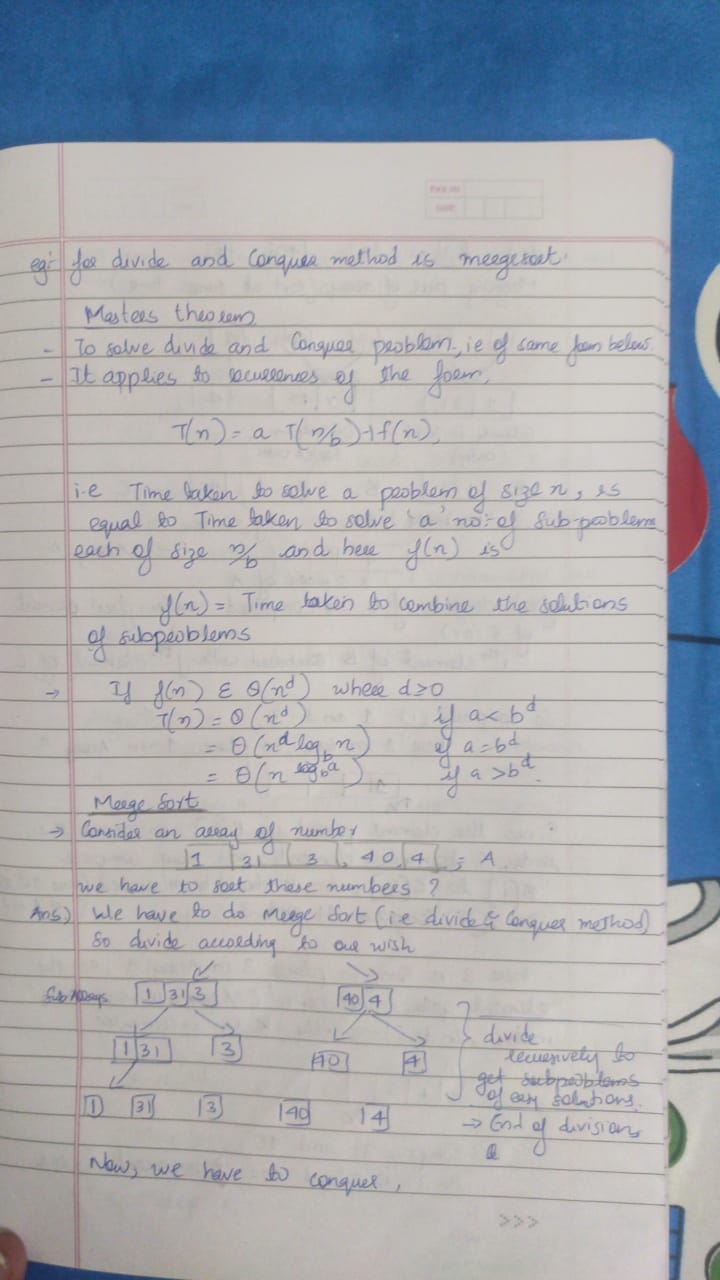 PAGE NO:
DATE:
eg:- for divide and Conquer method is mergesort.
Masters theorem
- To solve divide and Conquer problem, ie of same form below.
- It applies to recurrences of the form,
T(n) = a T(n/b) + f(n),
i.e Time taken to solve a problem of size n, is
equal to Time taken to solve 'a' no: of Sub-problems
each of size n/b and here f(n) is
f(n) = Time taken to combine the solutions
of subproblems
→ If f(n) ∈ Θ(n^d) where d≥0
T(n) = Θ(n^d) if a < b^d
= Θ(n^d log_b n) if a = b^d
= Θ(n^log_b a) if a > b^d.
Merge Sort
→ Consider an array of number
1 31 3, 40, 4 = A
we have to sort these numbers ?
Ans) We have to do Merge Sort (i.e divide & Conquer method)
So divide according to our wish
Sub Arrays 1 31 3 40 4
divide
1 31 3 40 4 recursively to
get subproblems
of easy solutions.
1 31 3 40 4 → End of division
Now, we have to conquer,
>>>